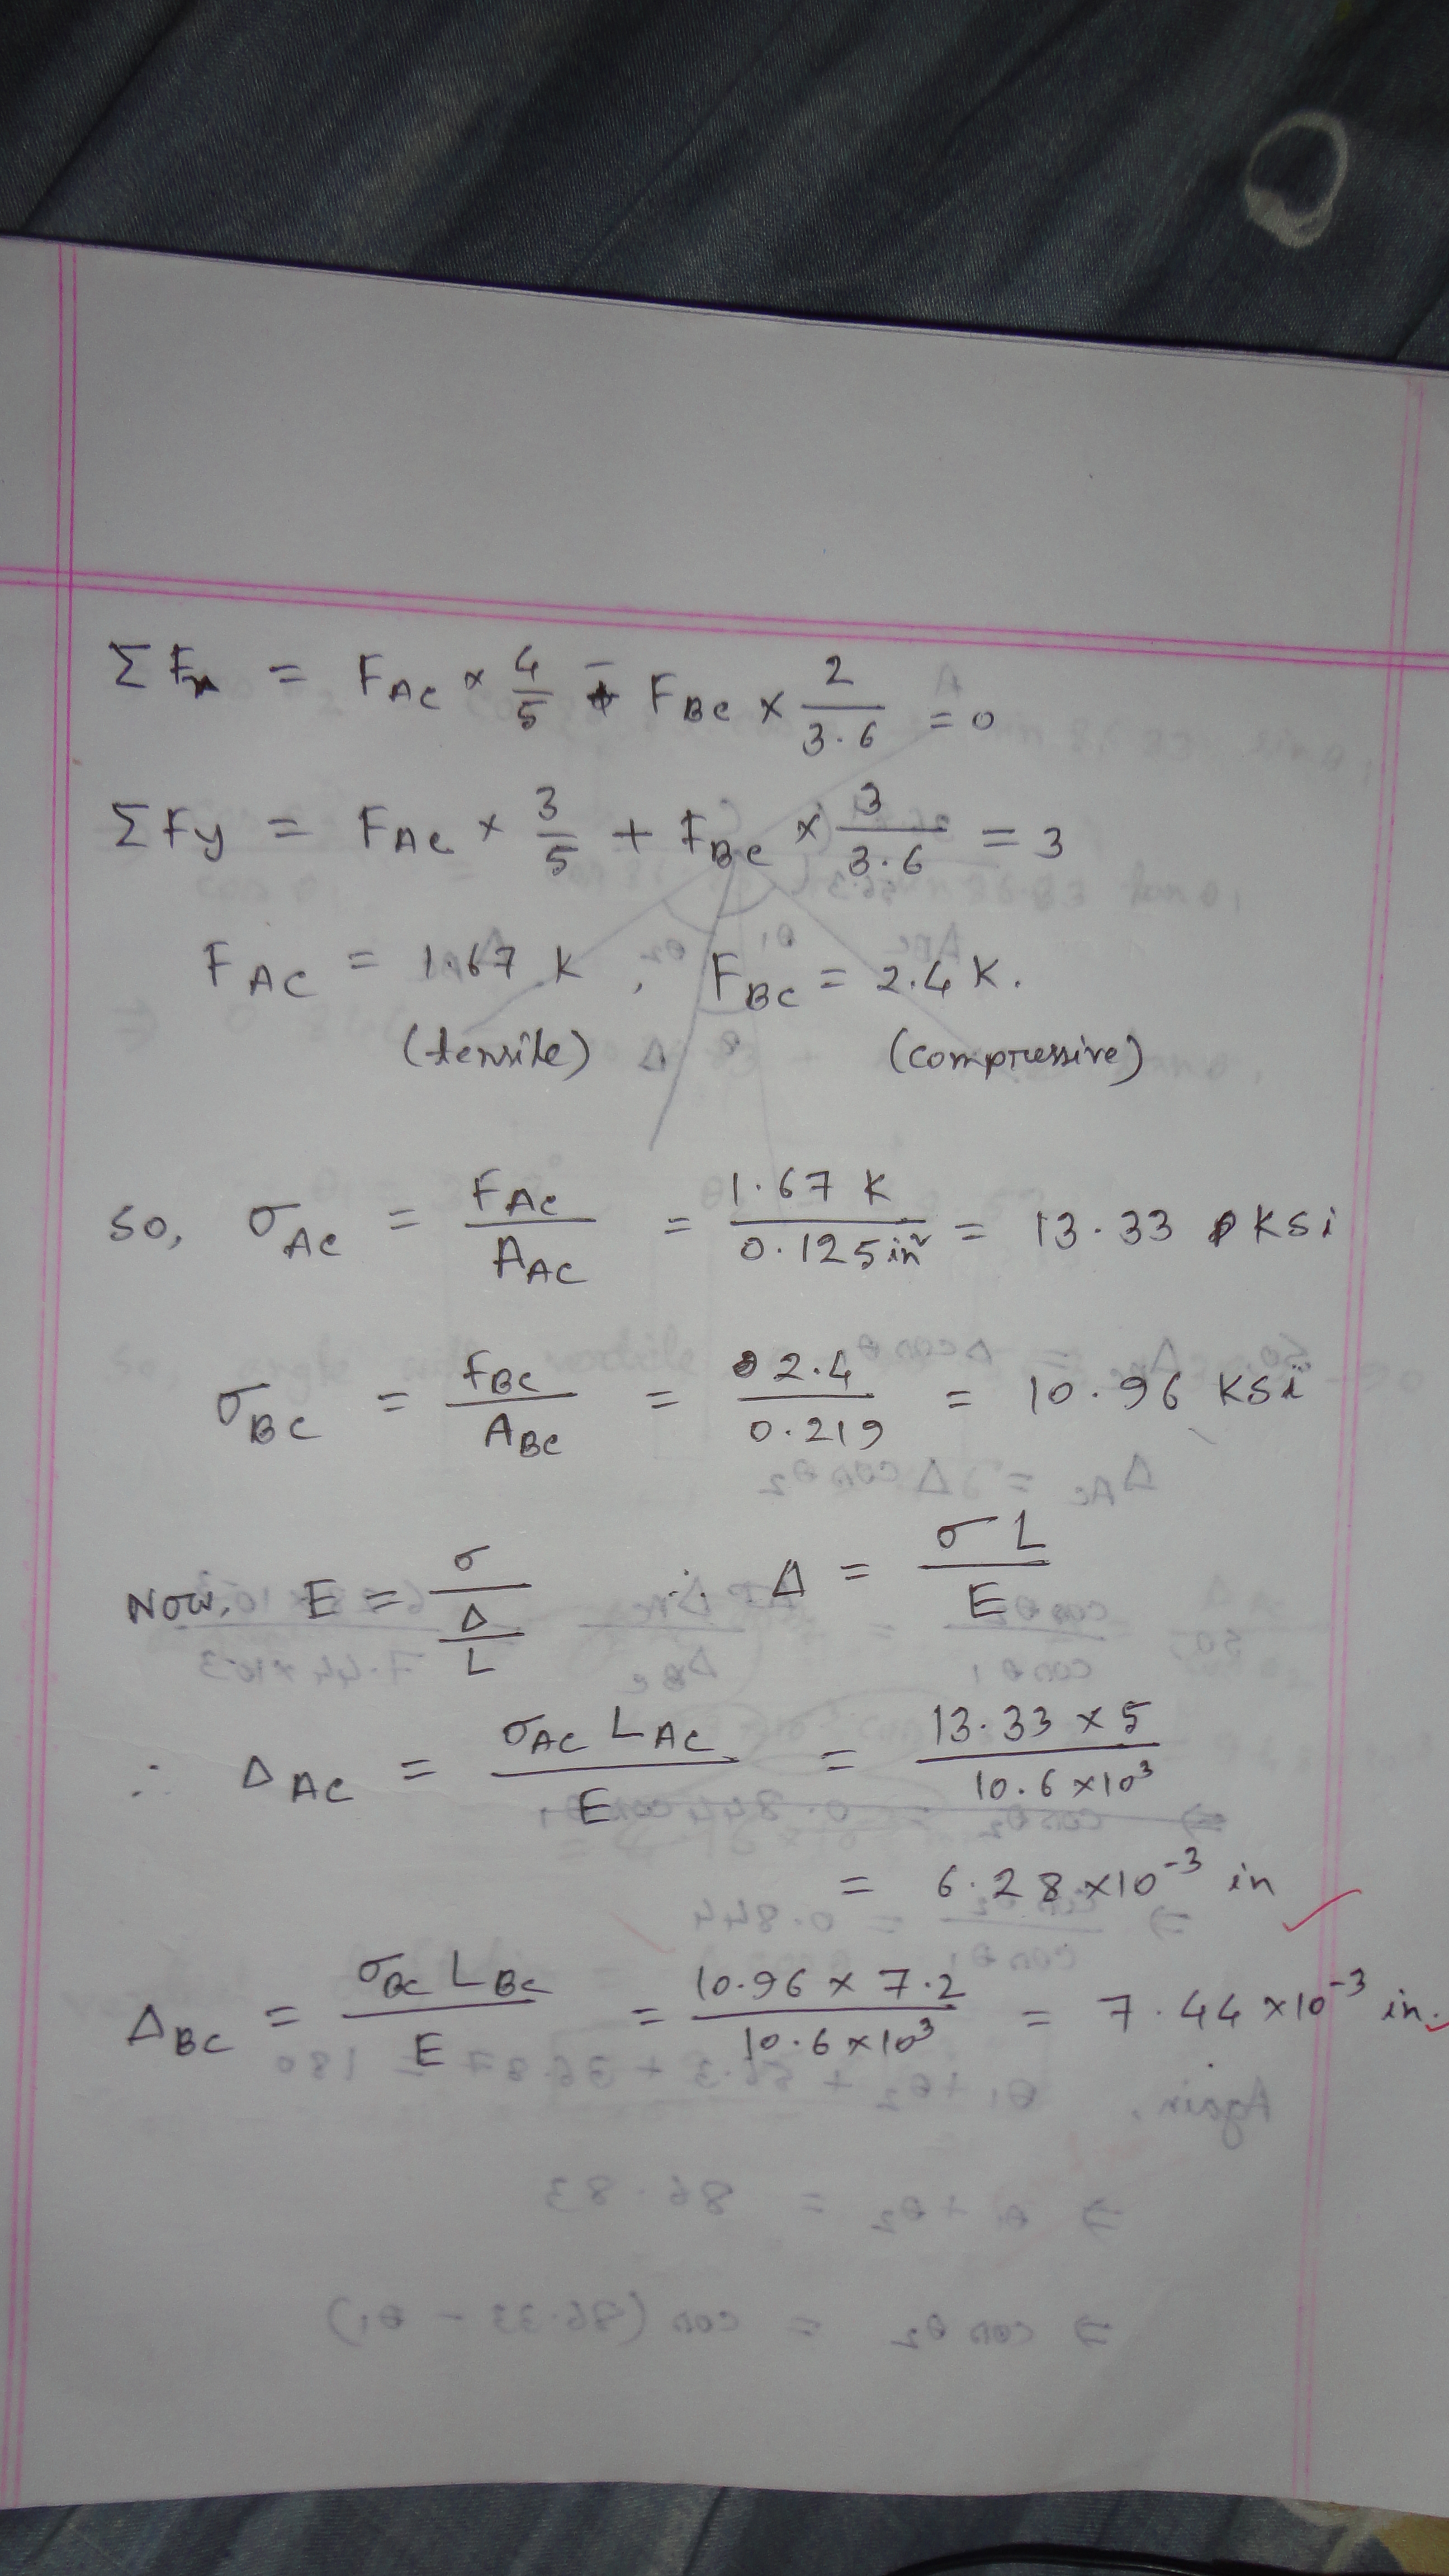 ΣFx = F_AC × 4/5 - F_BC × 2/3.6 = 0
ΣFy = F_AC × 3/5 + F_BC × 3/3.6 = 3
F_AC = 1.67 K , F_BC = 2.4 K.
(tensile) (compressive)
So, σ_AC = F_AC/A_AC = 1.67 K/0.125 in² = 13.33 ksi
σ_BC = F_BC/A_BC = 2.4/0.219 = 10.96 ksi
Now, E = σ/(Δ/L) ∴ Δ = σL/E
∴ Δ_AC = σ_AC L_AC/E = 13.33 × 5/10.6 × 10³
= 6.28 × 10⁻³ in
Δ_BC = σ_BC L_BC/E = 10.96 × 7.2/10.6 × 10³ = 7.44 × 10⁻³ in.